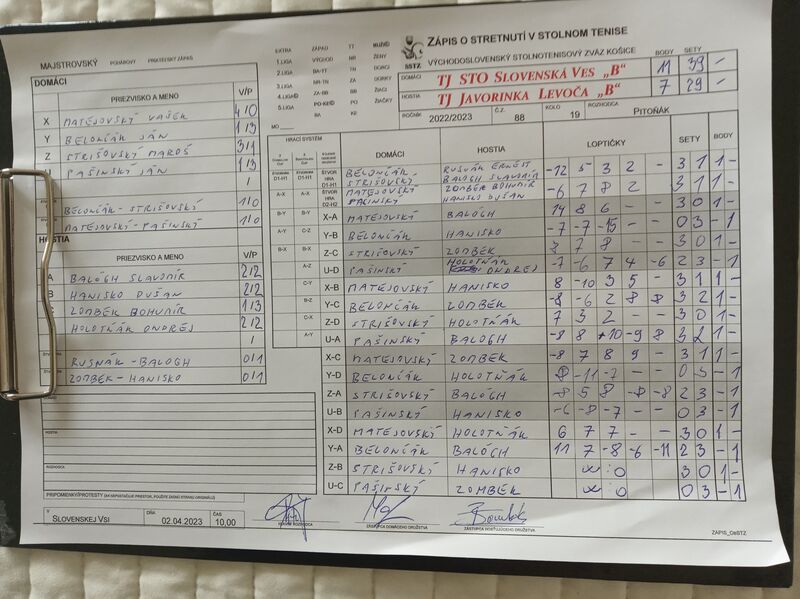 ZÁPIS O STRETNUTÍ V STOLNOM TENISE
VÝCHODOSLOVENSKÝ STOLNOTENISOVÝ ZVÄZ KOŠICE
SSTZ
BODY SETY
DOMÁCI TJ STO SLOVENSKÁ VES „B" 11 39 -
HOSTIA TJ JAVORINKA LEVOČA „B" 7 29 -
ROČNÍK 2022/2023 Č.Z. 88 KOLO 19 ROZHODCA PITOŇÁK
MAJSTROVSKÝ POHÁROVÝ PRIATEĽSKÝ ZÁPAS
EXTRA ZÁPAD TT MUŽI
1.LIGA VÝCHOD NR ŽENY
2.LIGA BA-TT TN DORCI
3.LIGA NR-TN ZA DORKY
4.LIGA ZA-BB BB ŽIACI
5.LIGA PO-KE PO ŽIAČKY
BA KE
MO
DOMÁCI
PRIEZVISKO A MENO V/P
X MATEJOVSKÝ VAŠEK 4/0
Y BELONČÁK JÁN 1/3
Z STRIŠOVSKÝ MAROŠ 3/1
U PAŠINSKÝ JÁN 1/3
BELONČÁK-STRIŠOVSKÝ 1/0
MATEJOVSKÝ-PAŠINSKÝ 1/0
HOSTIA
PRIEZVISKO A MENO V/P
A BALÓGH SLAVOMÍR 2/2
B HANISKO DUŠAN 2/2
C ZOMBEK BOHUMÍR 1/3
HOLOTŇÁK ONDREJ 2/2
RUSNÁK-BALOGH 0/1
ZOMBEK-HANISKO 0/1
HRACÍ SYSTÉM DOMÁCI HOSTIA LOPTIČKY SETY BODY
ŠTVORHRA D1-H1 BELONČÁK STRIŠOVSKÝ RUSNÁK ERNEST BALÓGH SLAVOMÍR -12 5 3 2 - 3 1 1 -
ŠTVORHRA D2-H2 MATEJOVSKÝ PAŠINSKÝ ZOMBEK BOHUMÍR HANISKO DUŠAN -6 7 8 2 3 1 1 -
X-A MATEJOVSKÝ BALÓGH 14 8 6 - - 3 0 1 -
Y-B BELONČÁK HANISKO -7 -7 -15 - - 0 3 - 1
Z-C STRIŠOVSKÝ ZOMBEK 7 8 - - 3 0 1 -
U-D PAŠINSKÝ HOLOTŇÁK ONDREJ -7 -6 7 4 -6 2 3 - 1
X-B MATEJOVSKÝ HANISKO 8 -10 3 5 - 3 1 1 -
Y-C BELONČÁK ZOMBEK -8 -6 2 8 8 3 2 1 -
Z-D STRIŠOVSKÝ HOLOTŇÁK 7 3 2 - - 3 0 1 -
U-A PAŠINSKÝ BALOGH -8 8 -9 8 3 2 1 -
X-C MATEJOVSKÝ ZOMBEK -8 7 8 9 - 3 1 1 -
Y-D BELONČÁK HOLOTŇÁK -11 -7 - - 0 3 - 1
Z-A STRIŠOVSKÝ BALÓGH -8 5 8 -8 -8 2 3 - 1
U-B PAŠINSKÝ HANISKO -6 -8 -7 - - 0 3 - 1
X-D MATEJOVSKÝ HOLOTŇÁK 6 7 7 - - 3 0 1 -
Y-A BELONČÁK BALÓGH 11 7 -8 -6 -11 2 3 - 1
Z-B STRIŠOVSKÝ HANISKO :0 3 0 1 -
U-C PAŠINSKÝ ZOMBEK :0 0 3 - 1
HOSTIA
ROZHODCA
V SLOVENSKEJ VSI DŇA 02.04.2023 ČAS 10,00
ZÁSTUPCA DOMÁCEHO DRUŽSTVA
ZÁSTUPCA HOSŤUJÚCEHO DRUŽSTVA